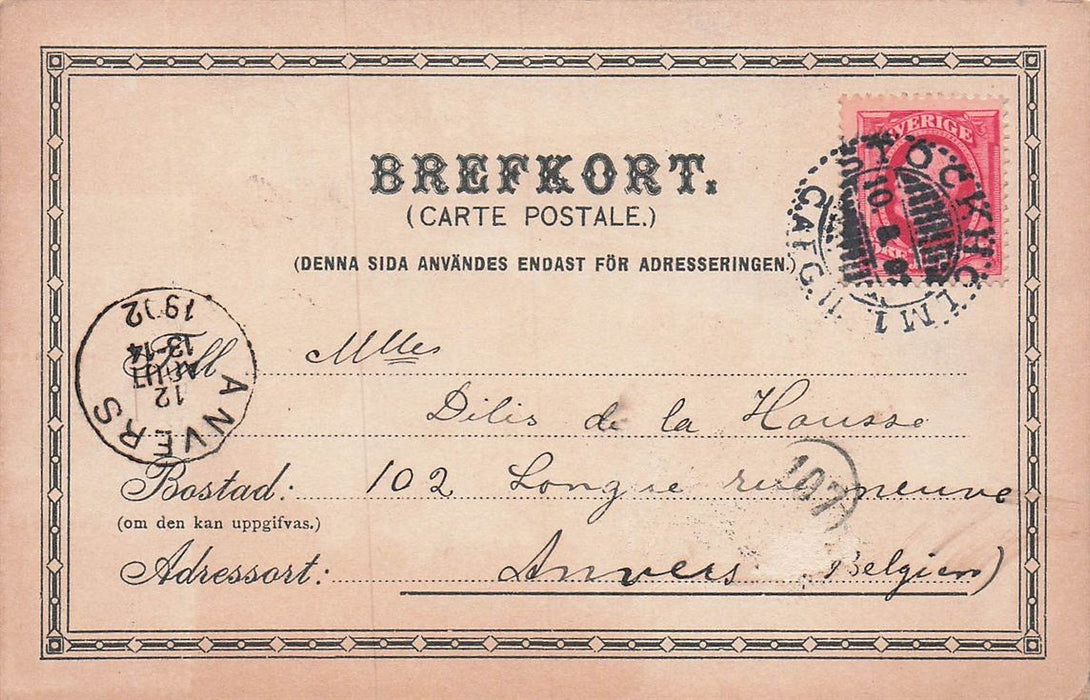 BREFKORT.
(CARTE POSTALE.)
(DENNA SIDA ANVÄNDES ENDAST FÖR ADRESSERINGEN.)
SVERIGE
STOCKHOLM 1
10 8
ANVERS
12
AOUT
13-14
1902
Till Mlles
Dilis de la Hausse
107
Bostad: 102 Longue rue neuve
(om den kan uppgifvas.)
Adressort: Anvers Belgien)